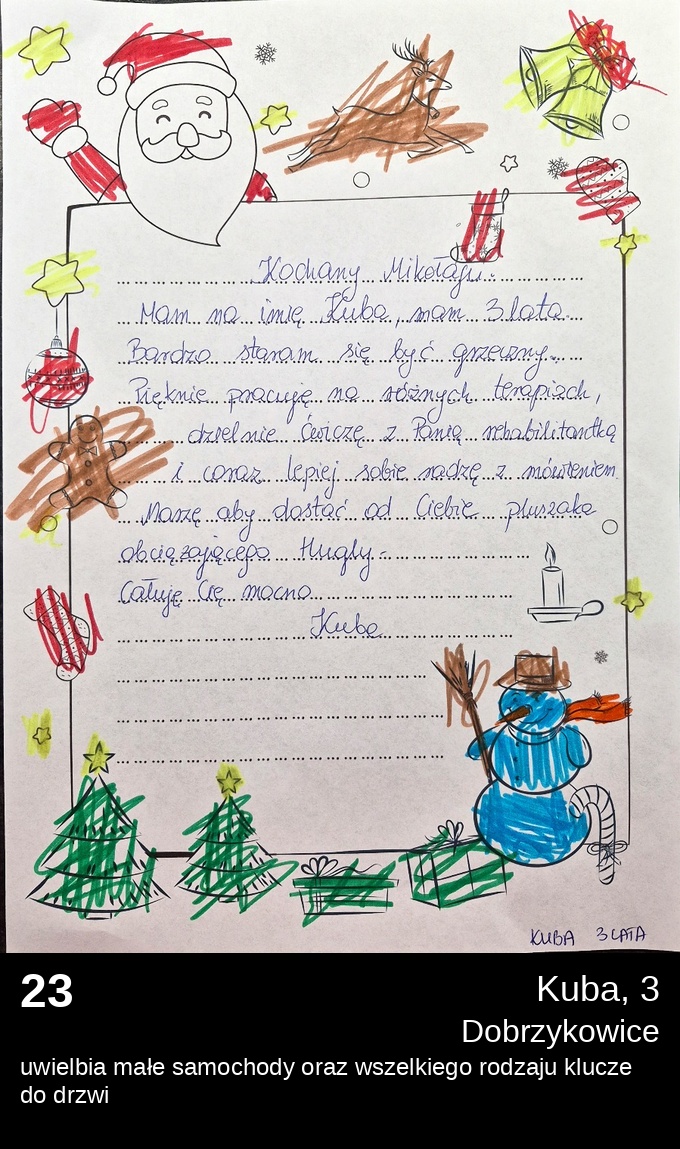 Kochany Mikołaju.
Mam na imię Kuba, mam 3 lata.
Bardzo staram się być grzeczny.
Pięknie pracuję na różnych terapiach,
dzielnie ćwiczę z Panią rehabilitantką
i coraz lepiej sobie radzę z mówieniem.
Marzę aby dostać od Ciebie pluszaka
obciążającego Hugly.
Całuję Cię mocno
Kuba
KUBA 3 LATA
23
Kuba, 3
Dobrzykowice
uwielbia małe samochody oraz wszelkiego rodzaju klucze
do drzwi